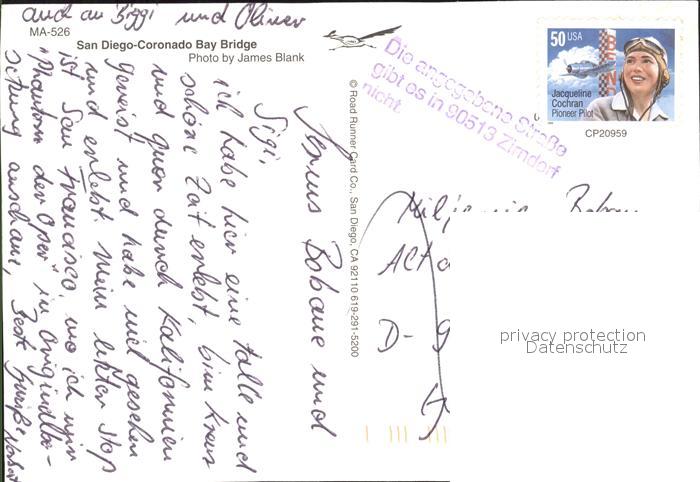 auch an Biggi und Oliver
MA-526
San Diego-Coronado Bay Bridge
Photo by James Blank
© Road Runner Card Co., San Diego, CA 92110 619-291-5200
50 USA
Jacqueline
Cochran
Pioneer Pilot
CP20959
Die angegebene Straße
gibt es in 90513 Zirndorf
nicht.
und
Sigi,
ich habe hier eine tolle und
schöne Zeit erlebt, bin kreuz
und quer durch Kalifornien
gereist und habe viel gesehen
und erlebt. Mein letzter Stop
ist San Francisco, wo ich mir
"Phantom der Oper" in
anschaue, Grüße Norbert
D-
privacy protection
Datenschutz